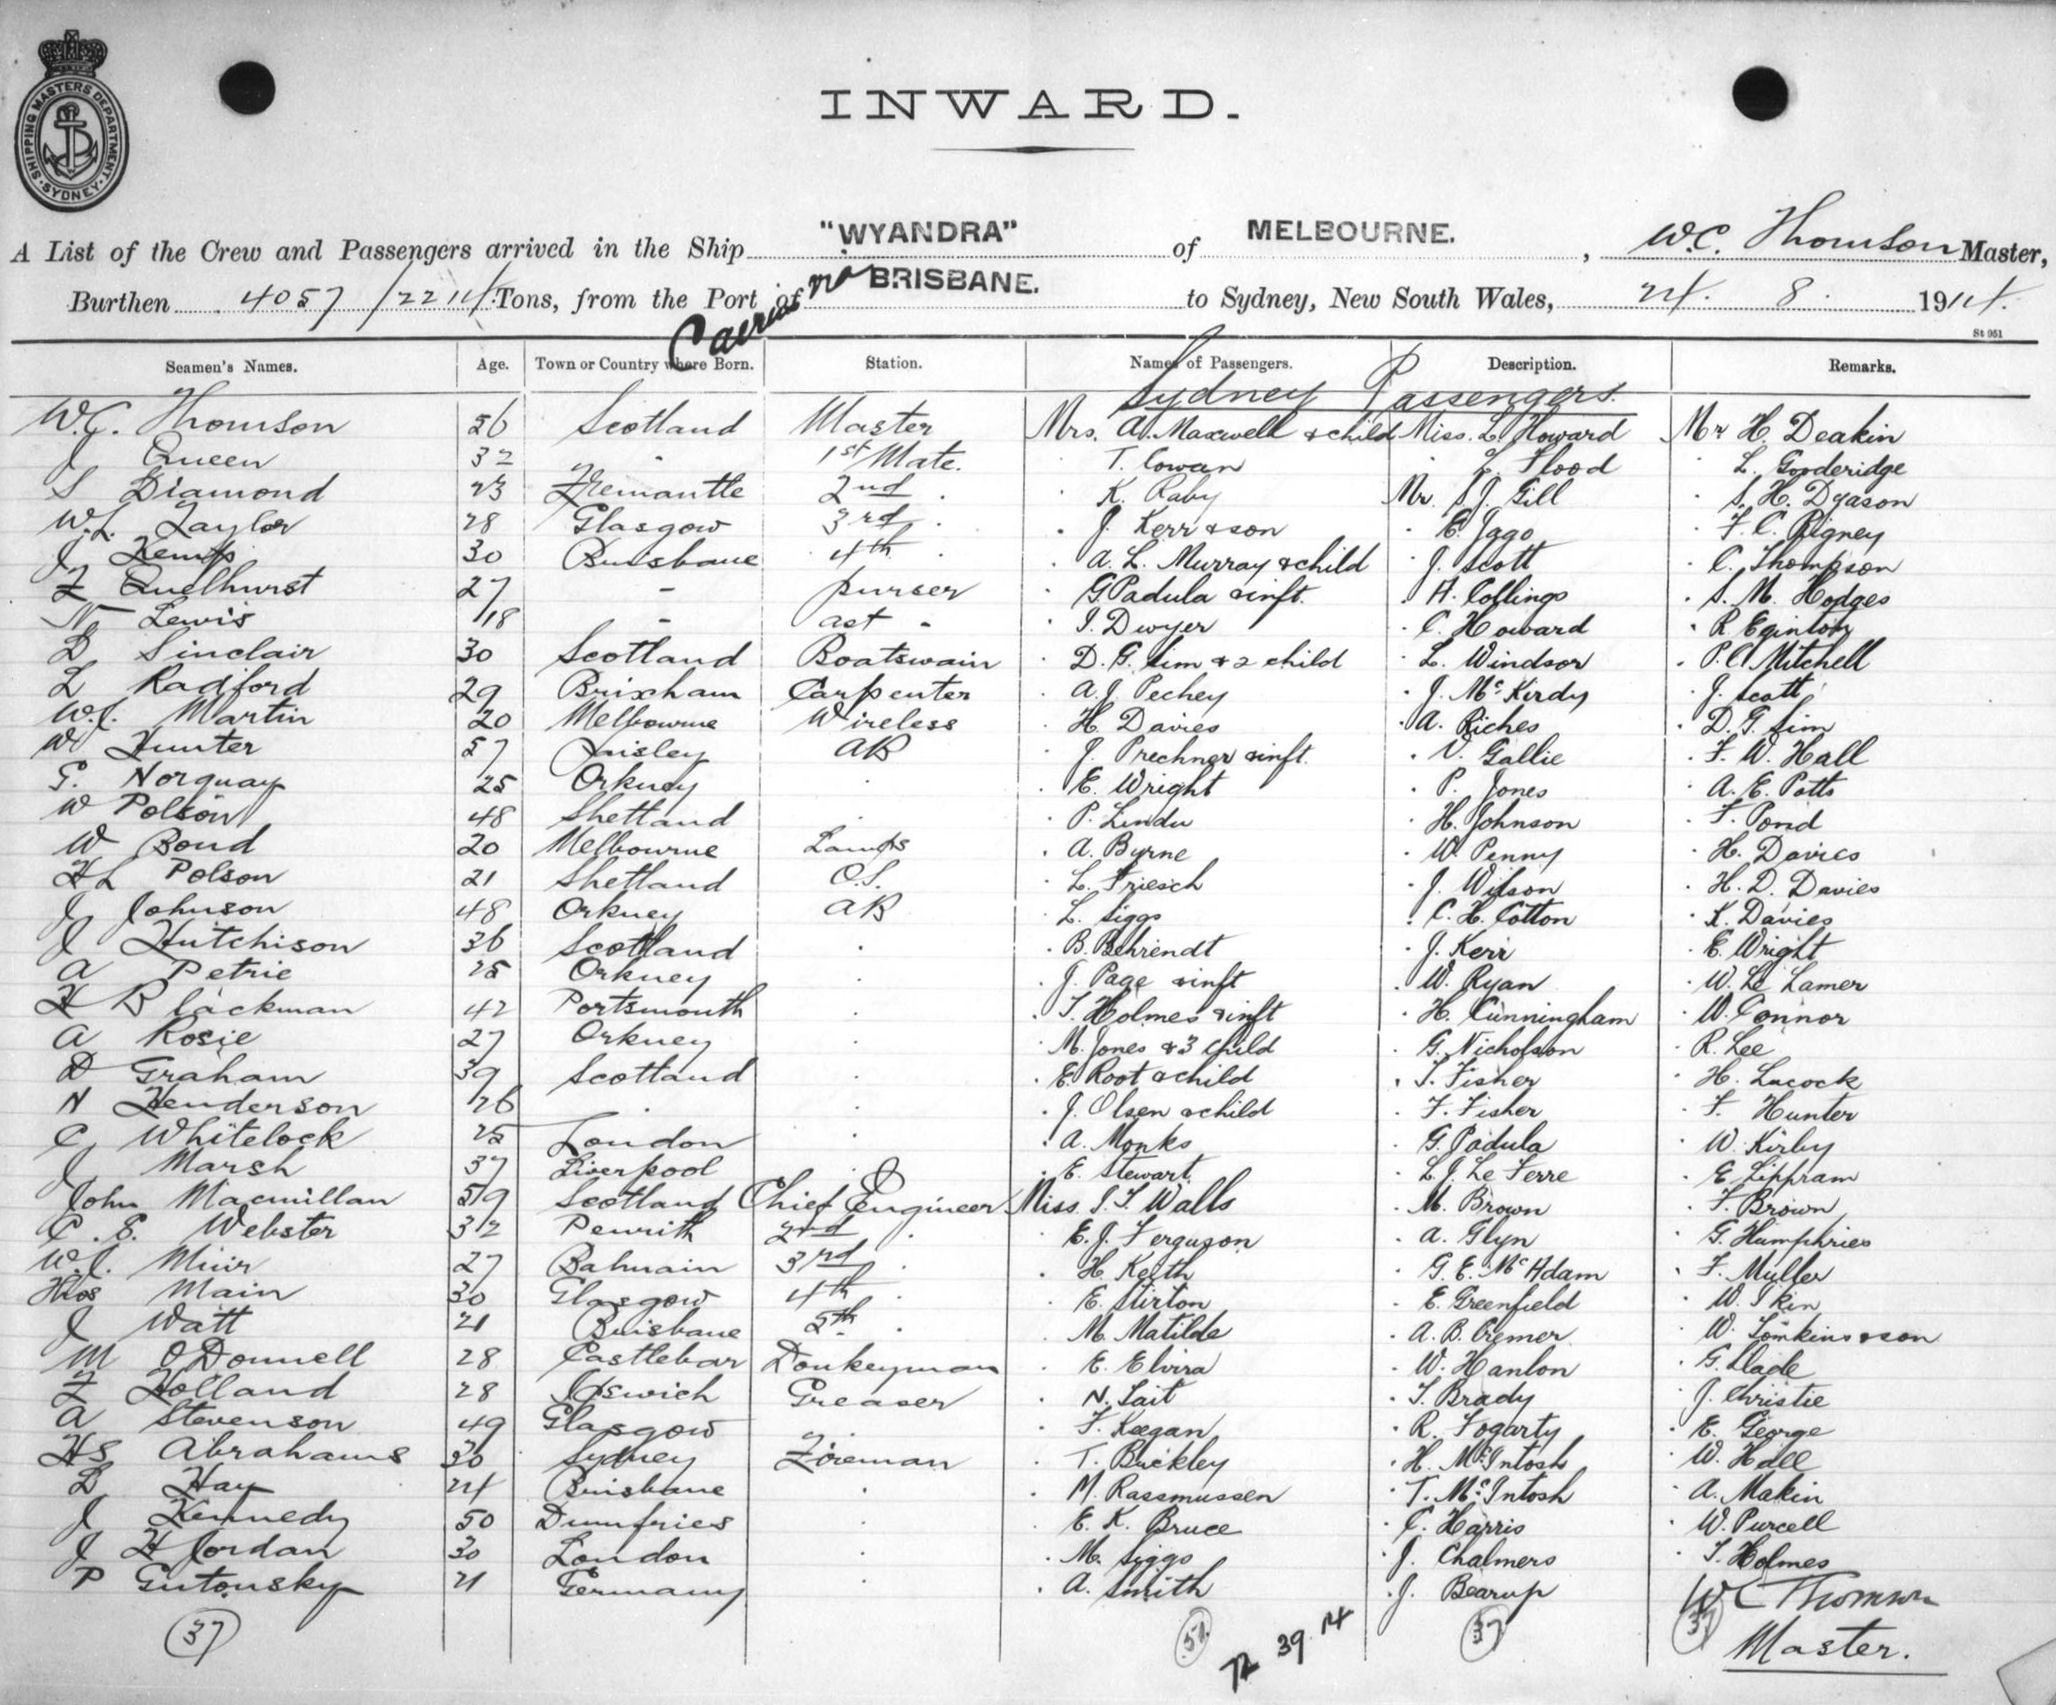 SHIPPING MASTERS DEPARTMENT. SYDNEY.
INWARD.
A List of the Crew and Passengers arrived in the Ship "WYANDRA" of MELBOURNE. , W.C. Thomson Master,
Burthen 4057/2214 Tons, from the Port of Cairns via BRISBANE. to Sydney, New South Wales, 24. 8. 1914.
St 951
Seamen's Names. Age. Town or Country where Born. Station. Names of Passengers. Description. Remarks.
Sydney Passengers.
W.C. Thomson 56 Scotland Master Mrs. A. Maxwell & child Miss. L. Howard Mr H. Deakin
J Queen 32 " 1st Mate. " T. Cowan " L. Flood " L. Gooderidge
S Diamond 23 Fremantle 2nd " " K. Raby Mr. S.J. Gill " S. H. Dyason
W.L. Taylor 28 Glasgow 3rd " " J. Kerr & son " E. Jago " F. C. Rigney
J Kemp 30 Brisbane 4th " " A. L. Murray & child " J. Scott " C. Thompson
F Quelhurst 27 " purser " G. Padula & inft. " A. Collings " S. M. Hodges
N Lewis 18 " ast " " I. Dwyer " C. Howard " R. Eginton
D Sinclair 30 Scotland Boatswain " D. G. Sim & 2 child " L. Windsor " P. C. Mitchell
L Radford 29 Brixham Carpenter " A. J. Pechey " J. McKirdy " J. Scott
W.J. Martin 20 Melbourne Wireless " H. Davies " A. Riches " D. G. Sim
W Hunter 57 Paisley AB " J. Prechner & inft. " V. Gallie " F. W. Hall
G. Norquay 25 Orkney " " E. Wright " P. Jones " A. E. Potts
W Polson 48 Shetland " " P. Lindu " H. Johnson " F. Pond
W Bond 20 Melbourne Lamps " A. Byrne " W. Penny " H. Davies
H L Polson 21 Shetland O.S. " L. Friesch " J. Wilson " H. D. Davies
J Johnson 48 Orkney AB " L. Siggs " C. H. Cotton " K. Davies
J Hutchison 36 Scotland " " B. Behrendt " J. Kerr " E. Wright
A Petrie 25 Orkney " " J. Page & inft " W. Ryan " W. Le Lamer
H Blackman 42 Portsmouth " " I. Holmes & inft " H. Cunningham " W. Connor
A Rosie 27 Orkney " " M. Jones & 3 child " G. Nicholson " R. Lee
D Graham 39 Scotland " " E. Root & child " T. Fisher " H. Lucock
N Henderson 26 " " " J. Olsen & child " F. Fisher " F. Hunter
C Whitelock 25 London " " A. Monks " G. Padula " W. Kirby
J Marsh 37 Liverpool " " E. Stewart " L. J. Le Ferre " E. Lippram
John Macmillan 59 Scotland Chief Engineer Miss. I. F. Walls " M. Brown " F. Brown
C. E. Webster 32 Penrith 2nd " " E. J. Ferguson " A. Glyn " G. Humphries
W.J. Muir 27 Bahrain 3rd " " H. Keith " G. E. McAdam " F. Muller
Thos Main 30 Glasgow 4th " " E. Stirton " E. Greenfield " W. Skin
J Watt 21 Brisbane 5th " " M. Matilde " A. B. Cremer " W. Tomkins & son
M O'Donnell 28 Castlebar Donkeyman " E. Elvira " W. Hanlon " G. Slade
F Holland 28 Ipswich Greaser " N. Lait " T. Brady " J. Christie
A Stevenson 49 Glasgow " " F. Keegan " R. Fogarty " E. George
H S Abrahams 30 Sydney Fireman " T. Buckley " H. McIntosh " W. Hall
D Hay 24 Brisbane " " M. Rassmussen " T. McIntosh " A. Makin
J Kennedy 50 Dumfries " " E. K. Bruce " C. Harris " W. Purcell
J H Jordan 30 London " " M. Siggs " J. Chalmers " T. Holmes
P Gutowsky 21 Germany " " A. Smith " J. Bearup W C Thomson
37 37 37 Master.
39 14